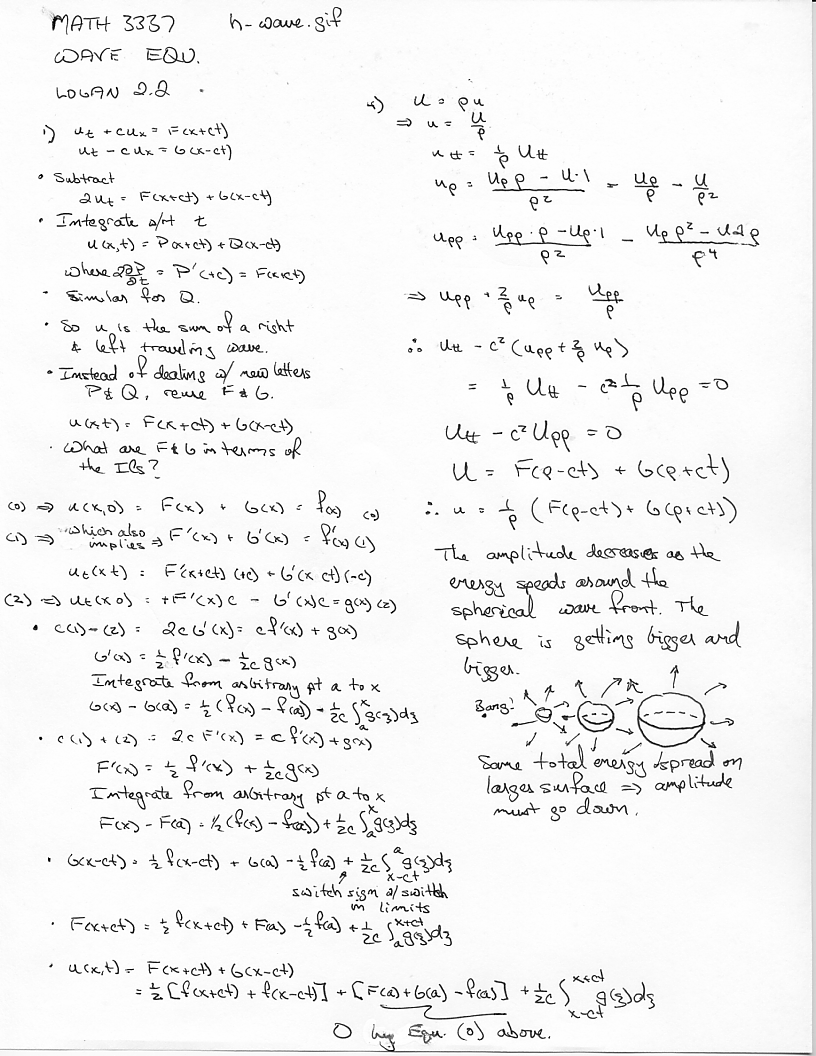 MATH 3337 h-wave.gif
WAVE EQU.
LOGAN 2.2
1) u_t + cu_x = F(x+ct)
u_t - cu_x = G(x-ct)
• Subtract
2u_t = F(x+ct) + G(x-ct)
• Integrate w/rt t
u(x,t) = P(x+ct) + Q(x-ct)
where 2∂P/∂t = P'(+c) = F(x+ct)
• Similar for Q.
• So u is the sum of a right
& left traveling wave.
• Instead of dealing w/ new letters
P & Q, reuse F & G.
u(x,t) = F(x+ct) + G(x-ct)
• What are F & G in terms of
the ICs?
(0) ⇒ u(x,0) = F(x) + G(x) = f(x) (0)
(1) ⇒ which also implies ⇒ F'(x) + G'(x) = f'(x) (1)
u_t(x t) = F'(x+ct) (+c) + G'(x ct) (-c)
(2) ⇒ u_t(x 0) = +F'(x)c - G'(x)c = g(x) (2)
• c(1) - (2) = 2c G'(x) = c f'(x) + g(x)
G'(x) = 1/2 f'(x) - 1/2c g(x)
Integrate from arbitrary pt a to x
G(x) - G(a) = 1/2 (f(x) - f(a)) - 1/2c ∫_a^x g(ξ)dξ
• c(1) + (2) = 2c F'(x) = c f'(x) + g(x)
F'(x) = 1/2 f'(x) + 1/2c g(x)
Integrate from arbitrary pt a to x
F(x) - F(a) = 1/2 (f(x) - f(a)) + 1/2c ∫_a^x g(ξ)dξ
• G(x-ct) = 1/2 f(x-ct) + G(a) - 1/2 f(a) + 1/2c ∫_{x-ct}^a g(ξ)dξ
switch sign w/ switch
in limits
• F(x+ct) = 1/2 f(x+ct) + F(a) - 1/2 f(a) + 1/2c ∫_a^{x+ct} g(ξ)dξ
• u(x,t) = F(x+ct) + G(x-ct)
= 1/2 [f(x+ct) + f(x-ct)] + [F(a) + G(a) - f(a)] + 1/2c ∫_{x-ct}^{x+ct} g(ξ)dξ
0 by Equ. (0) above.
4) U = ρu
⇒ u = U/ρ
u_tt = 1/ρ U_tt
u_ρ = (U_ρ ρ - U·1)/ρ² = U_ρ/ρ - U/ρ²
u_ρρ = (U_ρρ·ρ - U_ρ·1)/ρ² - (U_ρ ρ² - U2ρ)/ρ⁴
⇒ u_ρρ + 2/ρ u_ρ = U_ρρ/ρ
∴ u_tt - c² (u_ρρ + 2/ρ u_ρ)
= 1/ρ U_tt - c² 1/ρ U_ρρ = 0
U_tt - c² U_ρρ = 0
U = F(ρ-ct) + G(ρ+ct)
∴ u = 1/ρ (F(ρ-ct) + G(ρ+ct))
The amplitude decreases as the
energy speads around the
spherical wave front. The
sphere is getting bigger and
bigger.
Bang!
Same total energy spread on
larger surface ⇒ amplitude
must go down.